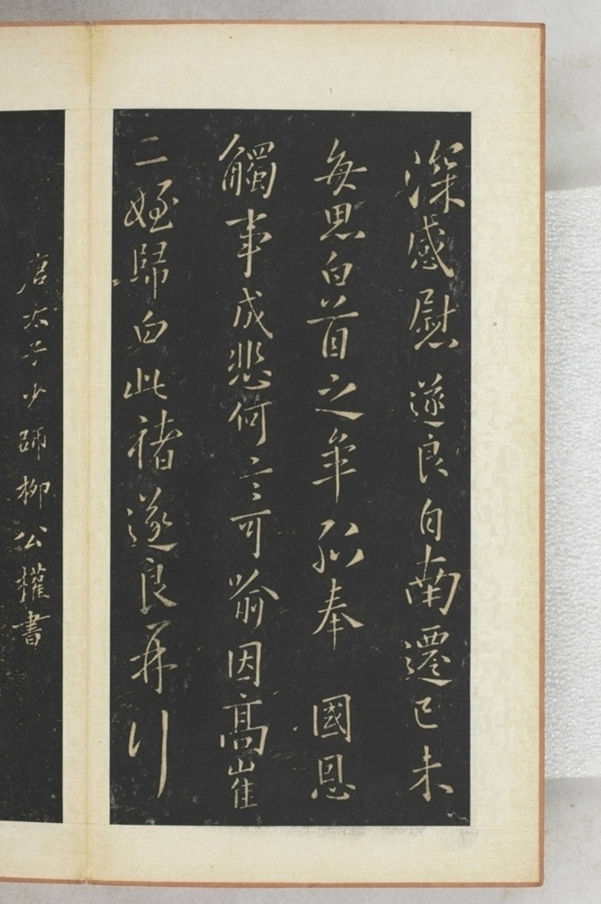 深感慰遂良自南遷已未
每思白首之年孤奉國恩
觸事成悲何言可喻因高崔
二姪歸白此褚遂良再行
唐太子少師柳公權書